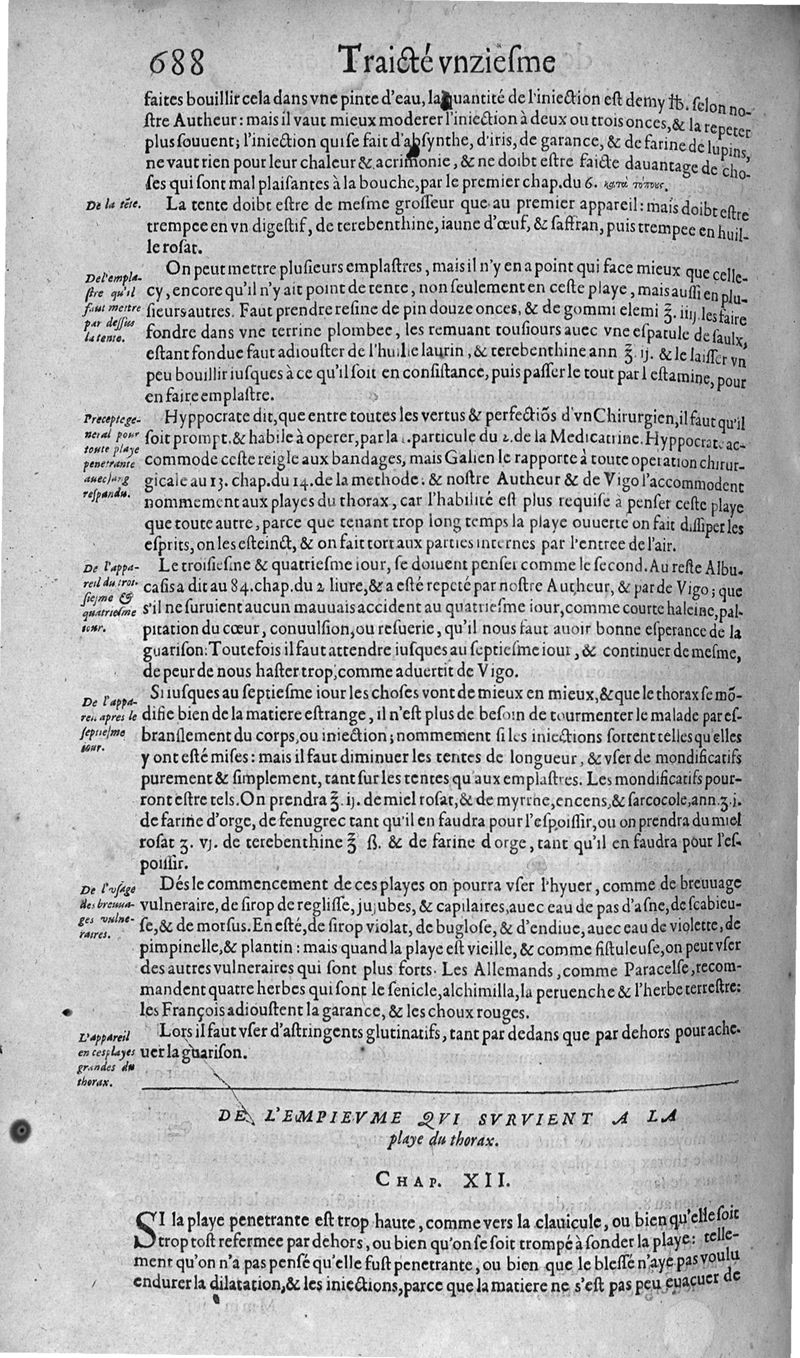 688 Traicté vnziesme
faites bouillir cela dans vne pinte d'eau, la quantité de l'iniection est demy ℔. selon no-
stre Autheur: mais il vaut mieux moderer l'iniection à deux ou trois onces, & la repeter
plus souuent; l'iniection qui se fait d'absynthe, d'iris, de garance, & de farine de lupins,
ne vaut rien pour leur chaleur & acrimonie, & ne doibt estre faicte dauantage de cho-
ses qui sont mal plaisantes à la bouche, par le premier chap. du 6. κατὰ τόπους.
De la tēte.
La tente doibt estre de mesme grosseur que au premier appareil: mais doibt estre
trempee en vn digestif, de terebenthine, iaune d'œuf, & saffran, puis trempee en huil-
le rosat.
De l'empla-
stre qu'il
faut mettre
par dessus
la tente.
On peut mettre plusieurs emplastres, mais il n'y en a point qui face mieux que celle-
cy, encore qu'il n'y ait point de tente, non seulement en ceste playe, mais aussi en plu-
sieurs autres. Faut prendre resine de pin douze onces, & de gommi elemi ℥. iiij. les faire
fondre dans vne terrine plombee, les remuant tousiours auec vne espatule de saulx,
estant fondue faut adiouster de l'huile laurin, & terebenthine ann ℥. ij. & le laisser vn
peu bouillir iusques à ce qu'il soit en consistance, puis passer le tout par l estamine, pour
en faire emplastre.
Precepte ge-
neral pour
toute playe
penetrante
auec sang
respandu.
Hyppocrate dit, que entre toutes les vertus & perfectiōs d'vn Chirurgien, il faut qu'il
soit prompt & habile à operer, par la particule du 2. de la Medicatrine. Hyppocrate ac-
commode ceste reigle aux bandages, mais Galien le rapporte à toute operation chirur-
gicale au 13. chap. du 14. de la methode: & nostre Autheur & de Vigo l'accommodent
nommement aux playes du thorax, car l'habilité est plus requise à penser ceste playe
que toute autre, parce que tenant trop long temps la playe ouuerte on fait dissiper les
esprits, on les esteinct, & on fait tort aux parties internes par l'entree de l'air.
De l'appa-
reil du troi-
siesme &
quatriesme
iour.
Le troisiesme & quatriesme iour, se doiuent penser comme le second. Au reste Albu.
casis a dit au 84. chap. du 2 liure, & a esté repeté par nostre Autheur, & par de Vigo; que
s'il ne suruient aucun mauuais accident au quatriesme iour, comme courte haleine, pal-
pitation du cœur, conuulsion, ou resuerie, qu'il nous faut auoir bonne esperance de la
guarison: Toutefois il faut attendre iusques au septiesme iour, & continuer de mesme,
de peur de nous haster trop, comme aduertit de Vigo.
De l'appa-
reil apres le
septiesme
iour.
Si iusques au septiesme iour les choses vont de mieux en mieux, & que le thorax se mō-
difie bien de la matiere estrange, il n'est plus de besoin de tourmenter le malade par es-
branslement du corps, ou iniection; nommement si les iniections sortent telles qu'elles
y ont esté mises: mais il faut diminuer les tentes de longueur, & vser de mondificatifs
purement & simplement, tant sur les tentes qu'aux emplastres. Les mondificatifs pour-
ront estre tels. On prendra ℥. ij. de miel rosat, & de myrrhe, encens, & sarcocole, ann. ʒ. i.
de farine d'orge, de fenugrec tant qu'il en faudra pour l'espoissir, ou on prendra du miel
rosat ʒ. vj. de terebenthine ℥ ß. & de farine d orge, tant qu'il en faudra pour l'es-
poissir.
De l'vsage
des breuua-
ges vulne-
raires.
Dés le commencement de ces playes on pourra vser l'hyuer, comme de breuuage
vulneraire, de sirop de reglisse, jujubes, & capilaires, auec eau de pas d'asne, de scabieu-
se, & de morsus. En esté, de sirop violat, de buglose, & d'endiue, auec eau de violette, de
pimpinelle, & plantin: mais quand la playe est vieille, & comme fistuleuse, on peut vser
des autres vulneraires qui sont plus forts. Les Allemands, comme Paracelse, recom-
mandent quatre herbes qui sont le senicle, alchimilla, la peruenche & l'herbe terrestre:
les François adioustent la garance, & les choux rouges.
L'appareil
en ces playes
grandes du
thorax.
Lors il faut vser d'astringents glutinatifs, tant par dedans que par dehors pour ache-
uer la guarison.
DE L'EMPIEVME QVI SVRVIENT A LA
playe du thorax.
CHAP. XII.
SI la playe penetrante est trop haute, comme vers la clauicule, ou bien qu'elle soit
trop tost refermee par dehors, ou bien qu'on se soit trompé à sonder la playe: telle-
ment qu'on n'a pas pensé qu'elle fust penetrante, ou bien que le blessé n'aye pas voulu
endurer la dilatation, & les iniections, parce que la matiere ne s'est pas peu euacuer de